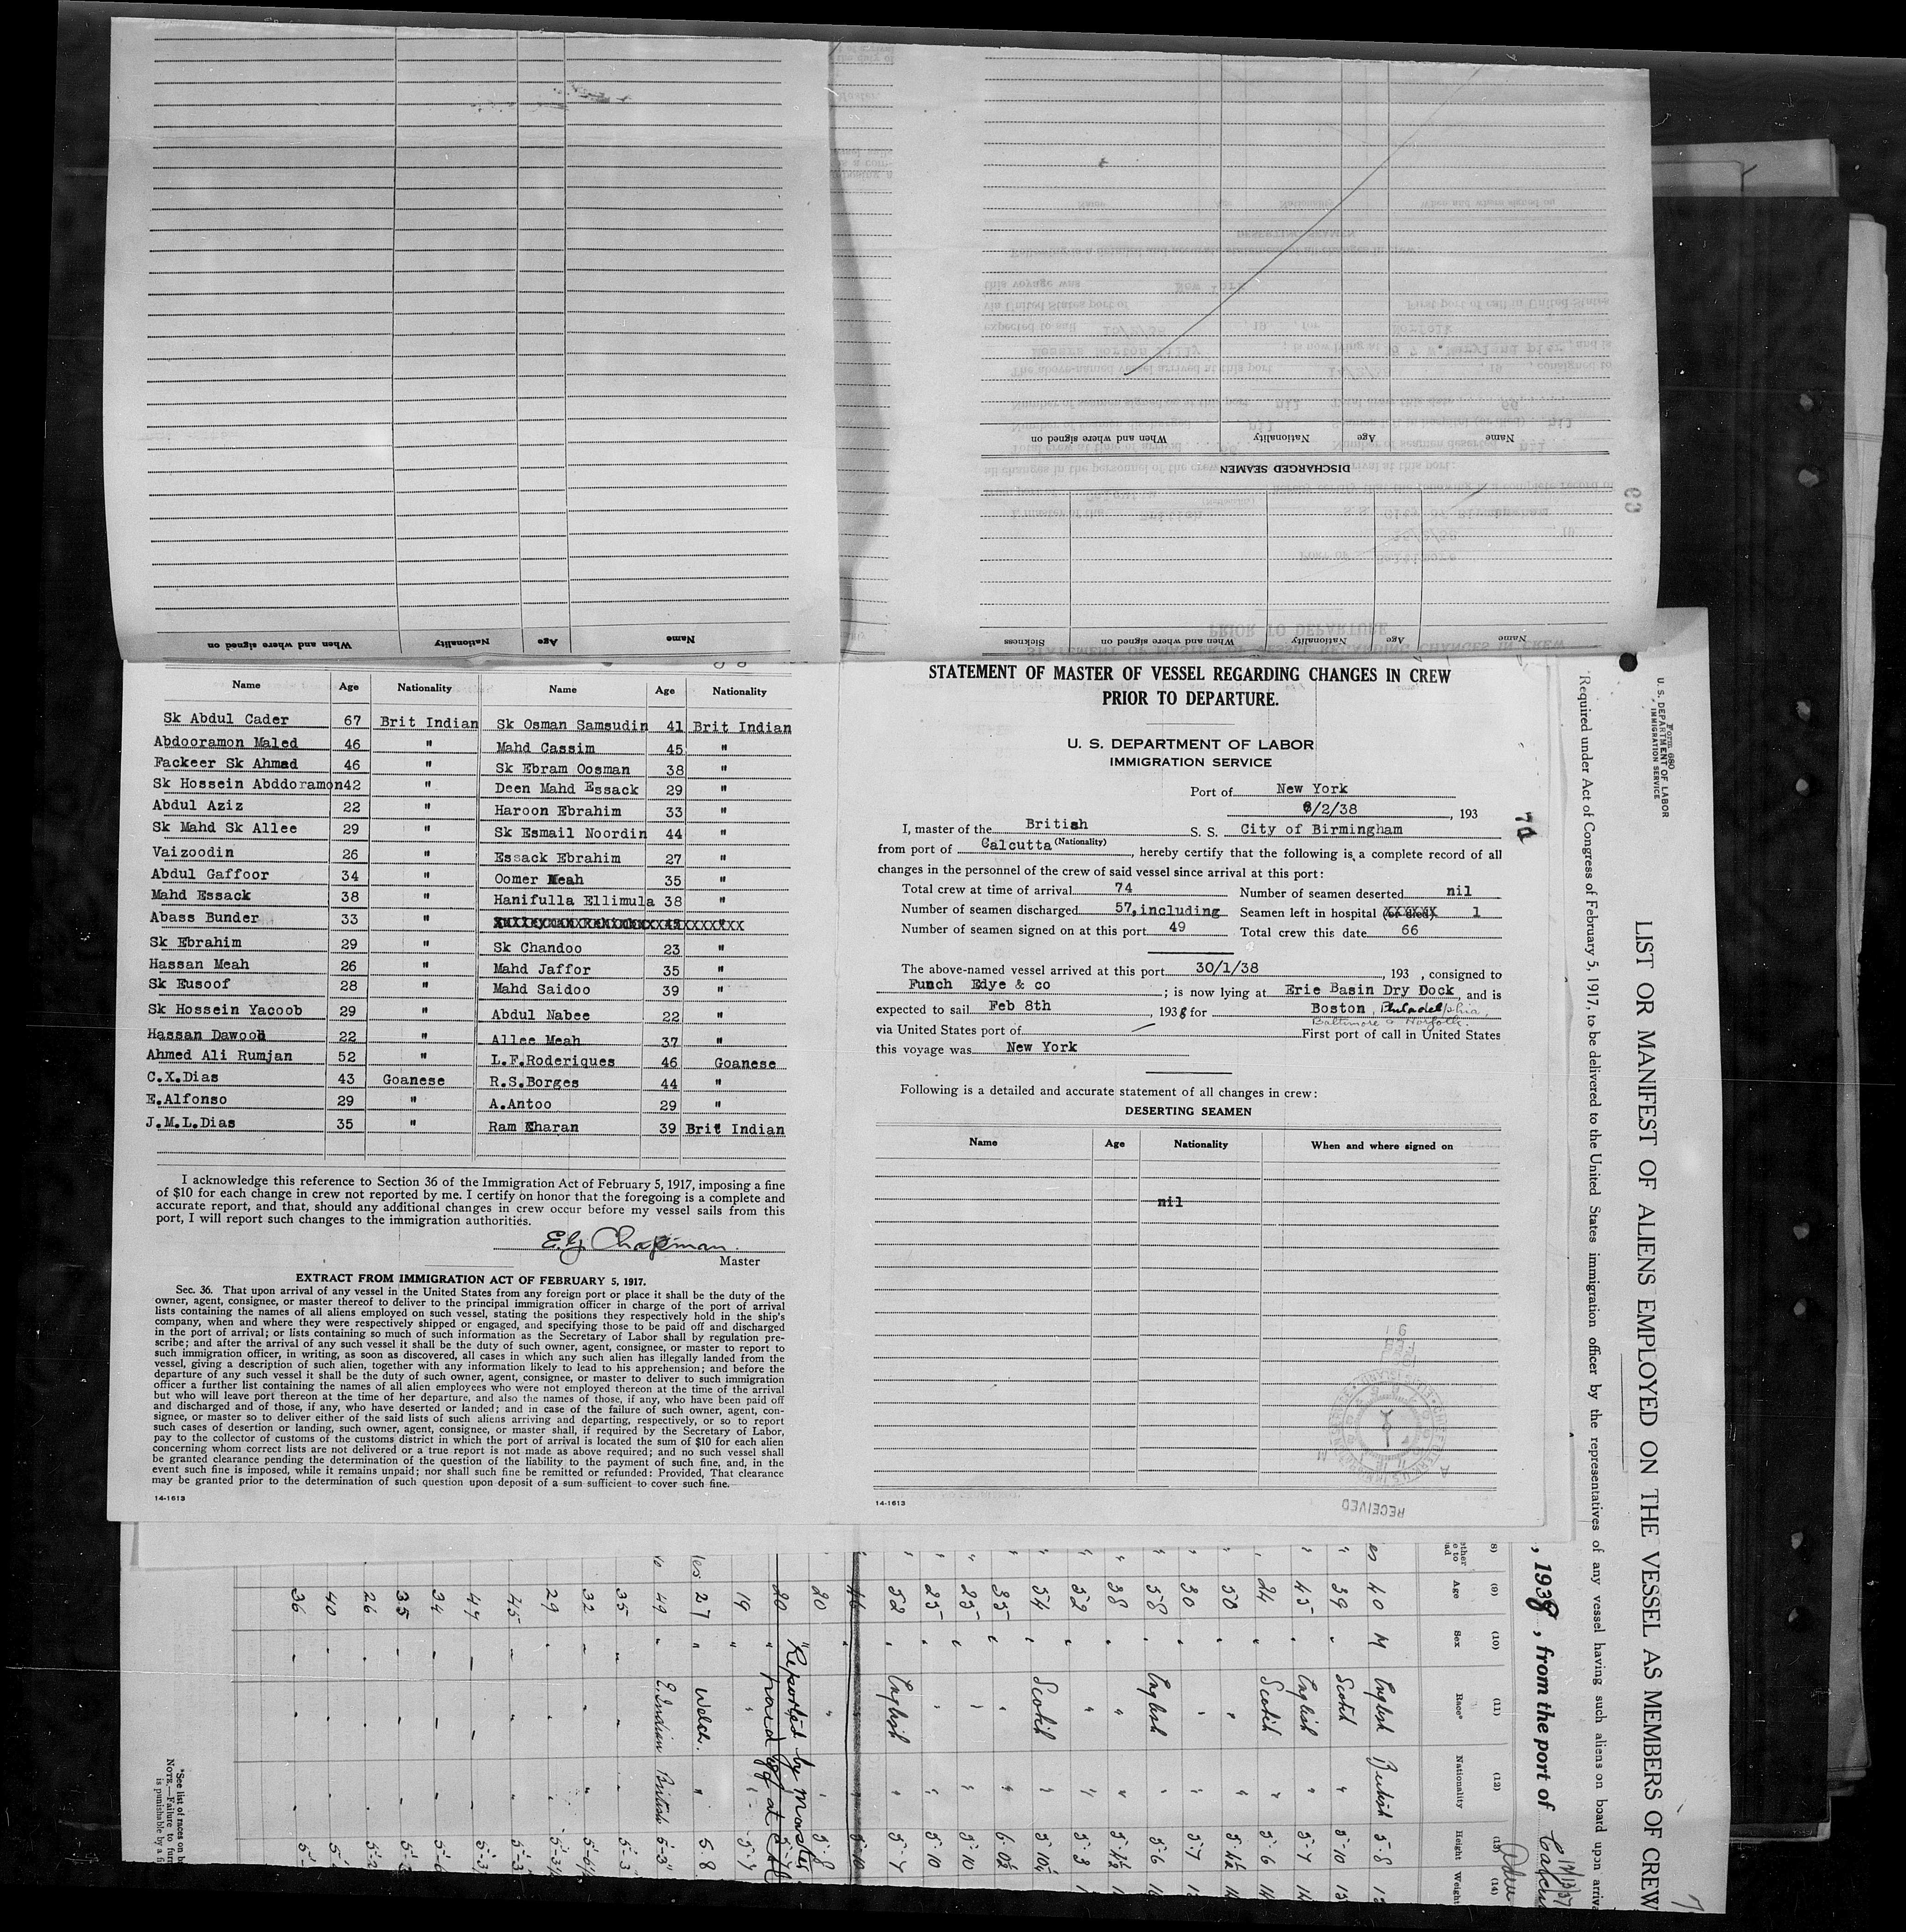 Name Age Nationality Name Age Nationality
Sk Abdul Cader 67 Brit Indian Sk Osman Samsudin 41 Brit Indian
Abdooramon Maled 46 " Mahd Cassim 45 "
Fackeer Sk Ahmed 46 " Sk Ebram Oosman 38 "
Sk Hossein Abddoramon 42 " Deen Mahd Essack 29 "
Abdul Aziz 22 " Haroon Ebrahim 33 "
Sk Mahd Sk Allee 29 " Sk Esmail Noordin 44 "
Vaizoodin 26 " Essack Ebrahim 27 "
Abdul Gaffoor 34 " Oomer Meah 35 "
Mahd Essack 38 " Hanifulla Ellimula 38 "
Abass Bunder 33 "
Sk Ebrahim 29 " Sk Chandoo 23 "
Hassan Meah 26 " Mahd Jaffor 35 "
Sk Eusoof 28 " Mahd Saidoo 39 "
Sk Hossein Yacoob 29 " Abdul Nabee 22 "
Hassan Dawood 22 " Allee Meah 37 "
Ahmed Ali Rumjan 52 " L.F.Roderiques 46 Goanese
C.X.Dias 43 Goanese R.S.Borges 44 "
E.Alfonso 29 " A.Antoo 29 "
J.M.L.Dias 35 " Ram Charan 39 Brit Indian
I acknowledge this reference to Section 36 of the Immigration Act of February 5, 1917, imposing a fine
of $10 for each change in crew not reported by me. I certify on honor that the foregoing is a complete and
accurate report, and that, should any additional changes in crew occur before my vessel sails from this
port, I will report such changes to the immigration authorities.
E.G. Chapman
Master
EXTRACT FROM IMMIGRATION ACT OF FEBRUARY 5, 1917.
Sec. 36. That upon arrival of any vessel in the United States from any foreign port or place it shall be the duty of the
owner, agent, consignee, or master thereof to deliver to the principal immigration officer in charge of the port of arrival
lists containing the names of all aliens employed on such vessel, stating the positions they respectively hold in the ship's
company, when and where they were respectively shipped or engaged, and specifying those to be paid off and discharged
in the port of arrival; or lists containing so much of such information as the Secretary of Labor shall by regulation pre-
scribe; and after the arrival of any such vessel it shall be the duty of such owner, agent, consignee, or master to report to
such immigration officer, in writing, as soon as discovered, all cases in which any such alien has illegally landed from the
vessel, giving a description of such alien, together with any information likely to lead to his apprehension; and before the
departure of any such vessel it shall be the duty of such owner, agent, consignee, or master to deliver to such immigration
officer a further list containing the names of all alien employees who were not employed thereon at the time of the arrival
but who will leave port thereon at the time of her departure, and also the names of those, if any, who have been paid off
and discharged and of those, if any, who have deserted or landed; and in case of the failure of such owner, agent, con-
signee, or master so to deliver either of the said lists of such aliens arriving and departing, respectively, or so to report
such cases of desertion or landing, such owner, agent, consignee, or master shall, if required by the Secretary of Labor,
pay to the collector of customs of the customs district in which the port of arrival is located the sum of $10 for each alien
concerning whom correct lists are not delivered or a true report is not made as above required; and no such vessel shall
be granted clearance pending the determination of the question of the liability to the payment of such fine, and, in the
event such fine is imposed, while it remains unpaid; nor shall such fine be remitted or refunded: Provided, That clearance
may be granted prior to the determination of such question upon deposit of a sum sufficient to cover such fine.
14-1613
STATEMENT OF MASTER OF VESSEL REGARDING CHANGES IN CREW
PRIOR TO DEPARTURE.
U. S. DEPARTMENT OF LABOR
IMMIGRATION SERVICE
Port of New York
8/2/38, 193
I, master of the British S. S. City of Birmingham
(Nationality)
from port of Calcutta, hereby certify that the following is a complete record of all
changes in the personnel of the crew of said vessel since arrival at this port:
Total crew at time of arrival 74 Number of seamen deserted nil
Number of seamen discharged 57, including Seamen left in hospital (or died) 1
Number of seamen signed on at this port 49 Total crew this date 66
The above-named vessel arrived at this port 30/1/38, 193 , consigned to
Funch Edye & co ; is now lying at Erie Basin Dry Dock, and is
expected to sail Feb 8th, 1938 for Boston, Philadelphia,
Baltimore & Norfolk.
via United States port of First port of call in United States
this voyage was New York
Following is a detailed and accurate statement of all changes in crew:
DESERTING SEAMEN
Name Age Nationality When and where signed on
nil
RECEIVED
14-1613
Name Age Nationality When and where signed on
DISCHARGED SEAMEN
Name Age Nationality When and where signed on
Name Age Nationality When and where signed on Sickness
74
Form 680
U. S. DEPARTMENT OF LABOR
IMMIGRATION SERVICE
LIST OR MANIFEST OF ALIENS EMPLOYED ON THE VESSEL AS MEMBERS OF CREW
Required under Act of Congress of February 5, 1917, to be delivered to the United States immigration officer by the representatives of any vessel having such aliens on board upon arriv
, 1938, from the port of Calcu
Aden
(9) (10) (11) (12) (13) (14)
Age Sex Race* Nationality Height Weight
40 M English British 5-8
39 " Scotch " 5-10
45 " English " 5-7
24 " Scotch " 5-6
50 " " " 5-4½
30 " " " 5-7
58 " English " 5-6
38 " " " 5-4½
52 " " " 5-3
54 " Scotch " 5-10½
35 " " " 6-0½
25 " " " 5-10
23 " " " 5-10
52 " English " 5-7
20 " " " 5-8
Reported by Master
paid off at
19 " " " 5-7
27 " Welch. " 5-8
49 " E. Indian British 5-3
35 " " " 5-3
32 " " " 5-6½
29 " " " 5-3½
45 " " " 5-3
47
34
35
26
40
36
*See list of races on b
NOTE.—Failure to fur
is punishable by a fi